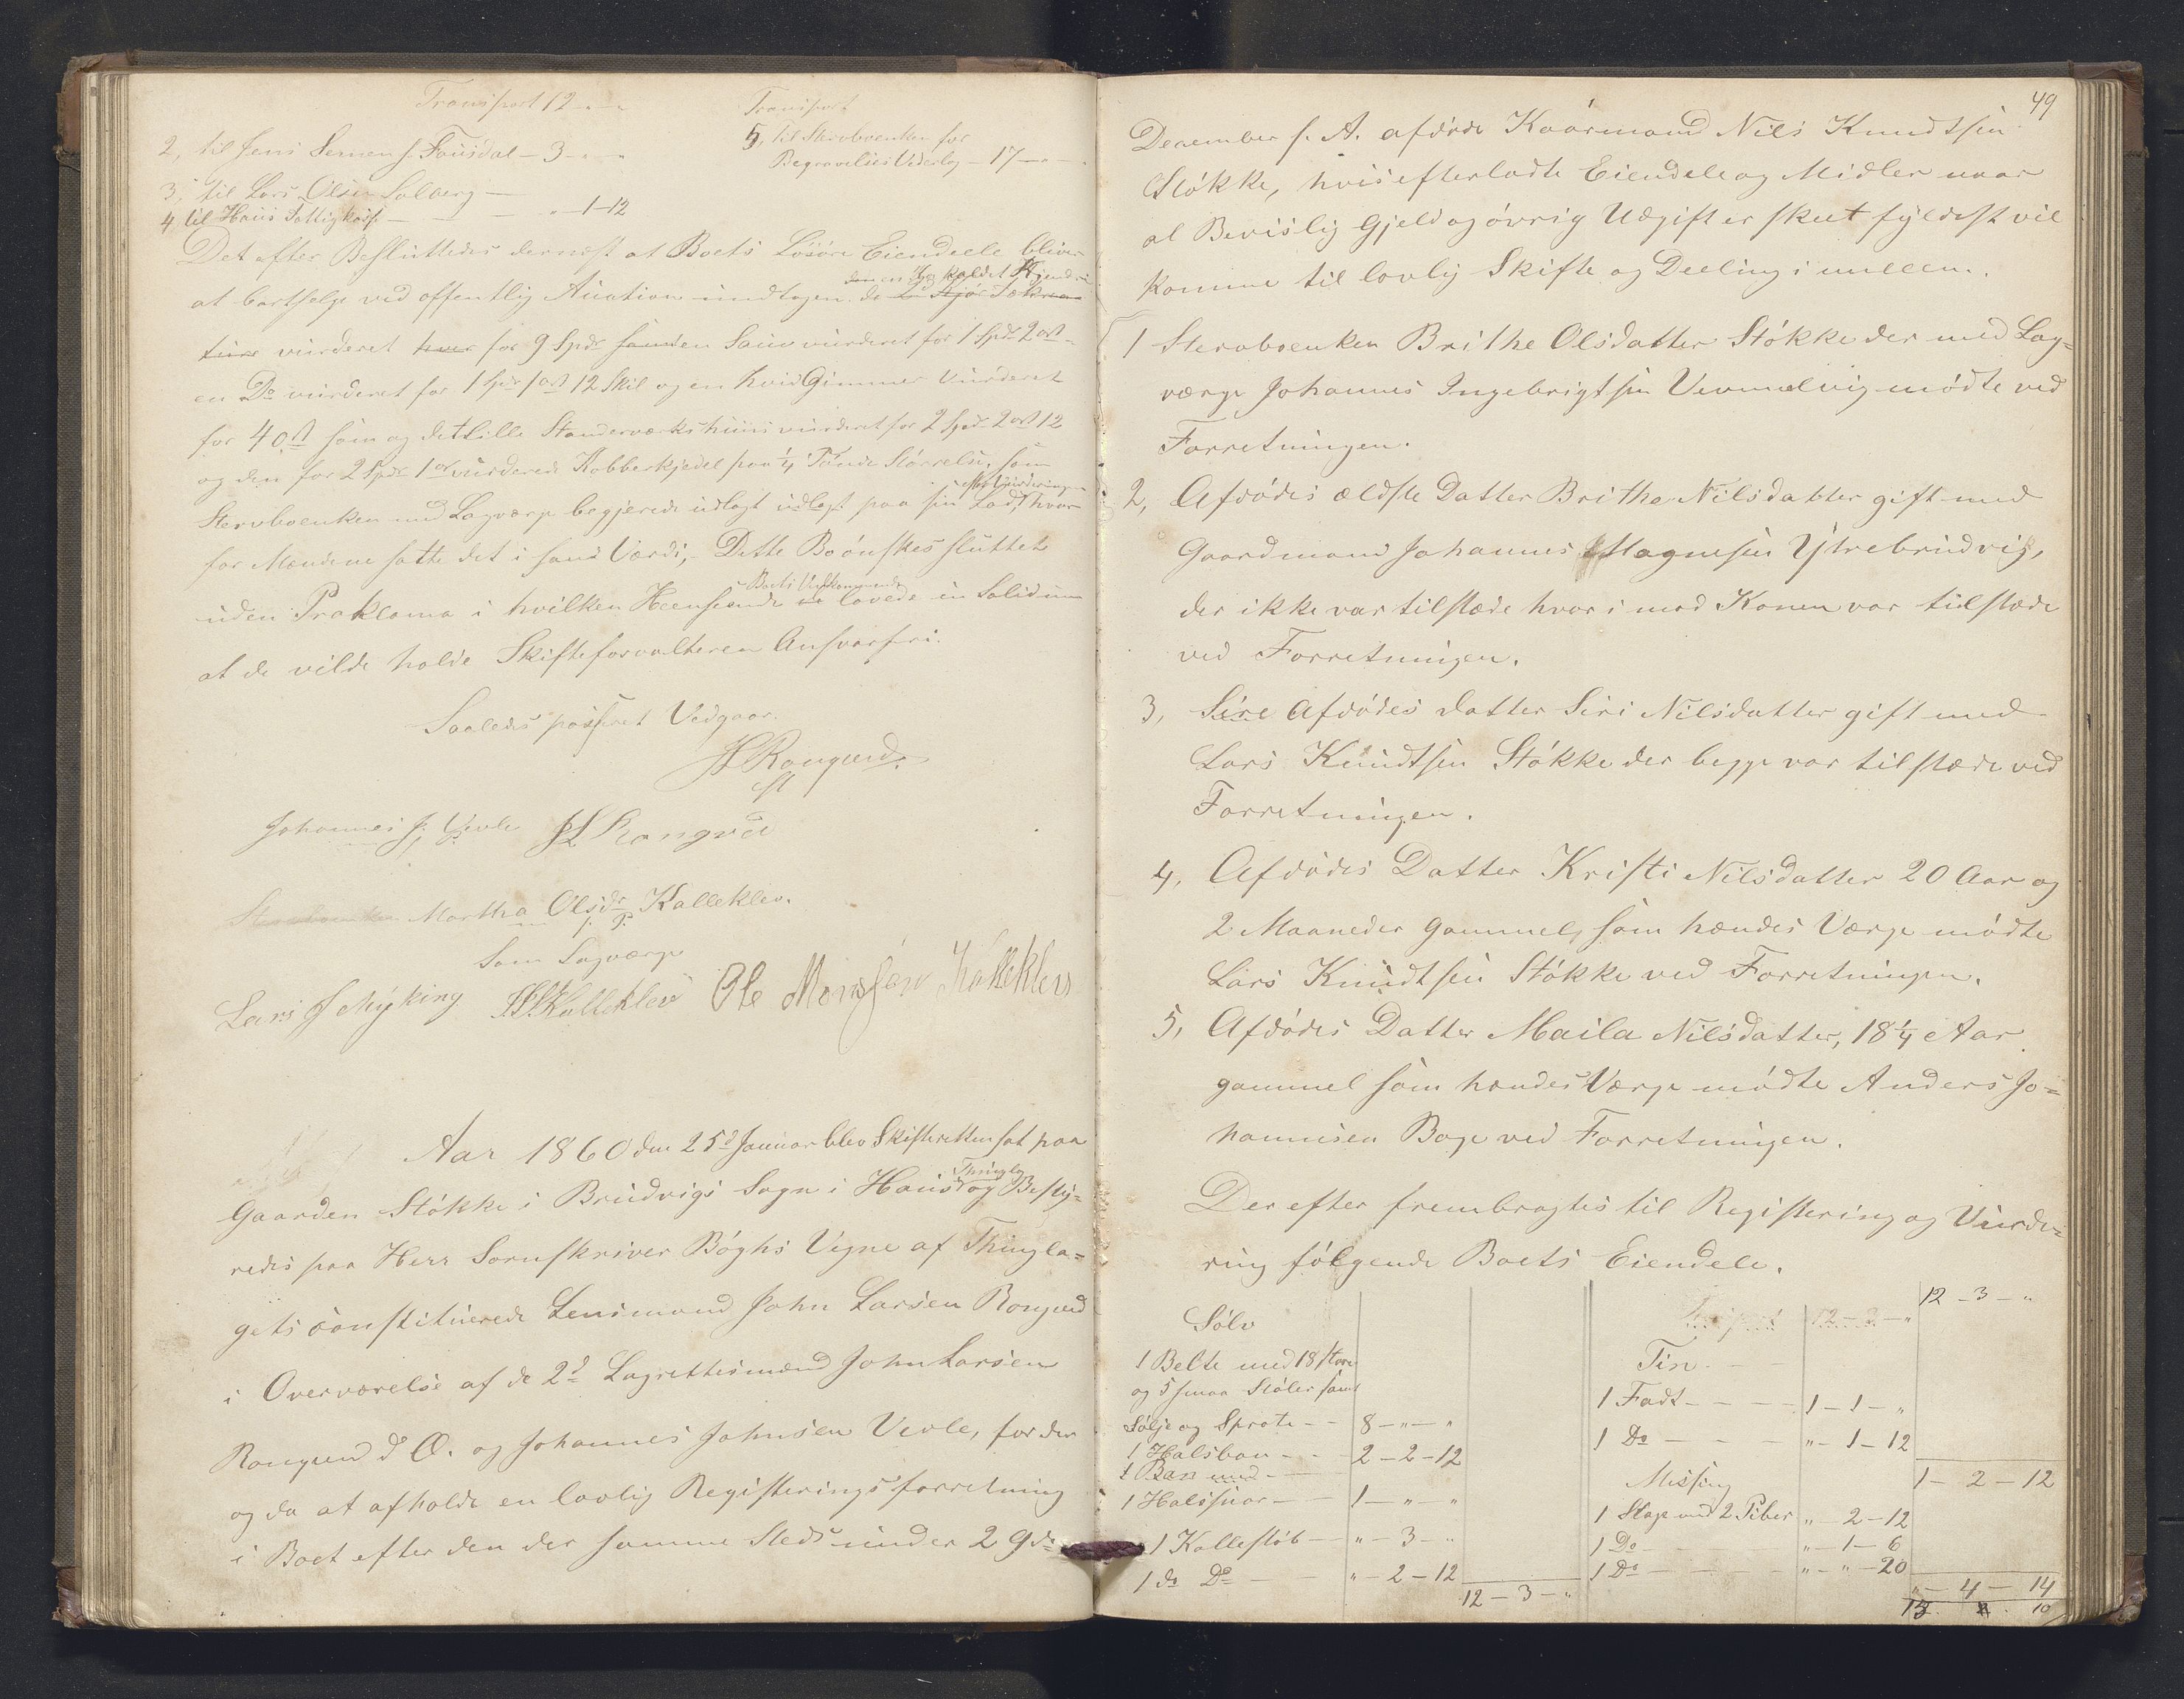 Transport 12 „ – „
2, til Jens Sernes f. Fousdal – 3 – „ – „
3, til Lars Olsen Solberg –
4 til Hans Fattigkasse – – – „ – 1 – 12
Transport
5, til Stervboenken for
Begravelses Vederlag – 17 – „ – „
Det efter Besluttedes dernæst at Boets Løsøre Eiendeele bliver
at bortsælge ved offentlig Auction undtagen
vurderet for 9 Spdr en Sau vurderet for 1 Spdr 2 ort
en Do vurderet for 1 Spd 1 ort 12 Skil og en hvid Gimmer vurderet
for 4 ort som og det lille Standerværkshuus vurderet for 2 Spdr 2 ort 12
og den for 2 Spdr 1 ort vurderede Kobberkjedel paa ¼ Tønde Størrelse, som
Stervboenken med Lagværge begjerede udlagt paa sin Lod efter Vurderingen, hvor
for Mændene satte det i sand Værdi, Dette Bo ønskes sluttet
uden Proklama i hvilken Heenseende Boets Vedkommende lovede in Solidum
at de vilde holde Skifteforvalteren Ansvarfri.
Saaledes passeret Vedgaar.
JLRongved.
cst
Johannes J. Vevle JLRongved
Stervboenken Martha Olsdr Kalleklev.
m. f. P.
Som Lagværge
Lars J Myking. Kalleklev Ole Monssen Kalleklev
Aar 1860 den 25d Januar blev Skifteretten sat paa
Gaarden Støkke i Brudvigs Sogn i Haus Thinglag og Besty=
redes paa Herr Sorenskriver Bøghs Vegne af Thingla=
gets constituerede Lensmand John Larsen Rongved
i Overværelse af de 2de Lagrettesmænd John Larsen
Rongved d Æ. og Johannes Johnsen Vevle, for der
og da at afholde en lovlig Registeringsforretning
i Boet efter den der samme Steds under 2 gde
49
December f. A. afdøde Kaarmand Nils Knudtsen
Støkke, hvis efterladte Eiendele og Midler naar
al Bevislig Gjeld og øvrig Udgift er skeet fyldest vil
komme til lovlig Skifte og Deeling imellem.
1 Stervboenken Brithe Olsdatter Støkke der med Lag=
værge Johannes Ingebrigtsen Vemmelvig mødte ved
Forretningen.
2, Afdødes ældste Datter Britha Nilsdatter gift med
Gaardmand Johannes Magnesen Ytrebrudvig,
der ikke var tilstæde hvorimod Konen var tilstæde
ved Forretningen.
3, Sire Afdødes datter Siri Nilsdatter gift med
Lars Knudtsen Støkke der begge var tilstæde ved
Forretningen.
4, Afdødes Datter Kristi Nilsdatter 20 Aar og
2 Maaneder gammel, som hendes Værge mødte
Lars Knudtsen Støkke ved Forretningen.
5, Afdødes Datter Maila Nilsdatter, 18¼ Aar
gammel som hendes Værge mødte Anders Jo=
hannesen Boge ved Forretningen.
Derefter frembragtes til Registering og Vurde=
ring følgende Boets Eiendele.
Sølv
1 Belte med 18 store
og 5 smaa Støler samt
Sølje og Sprote – – 8 – „ – „
1 Halsbon – – 2 – 2 – 12
1 Ban med –
1 Halssnor – – 1 – „ – „
1 Kallestøb – „ – 3 – „
1 do Do – – „ – 2 – 12
12 – 3 – „
Transport 12 – 3 – „
12 – 3 – „
Tin. –
1 Fadt – – – – 1 – 1 – „
1 Do – – – „ – 1 – 12
1 – 2 – 12
Messing
1 Stage med 2 Piber „ – 2 – 12
1 Do – „ – 1 – 6
1 Do – – – – „ – „ – 20
„ – 4 – 14